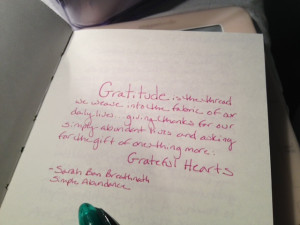 Gratitude is the thread
we weave into the fabric of our
daily lives... giving thanks for our
simply-abundant lives and asking
for the gift of one thing more:
Grateful Hearts
- Sarah Ban Breathnath
Simple Abundance